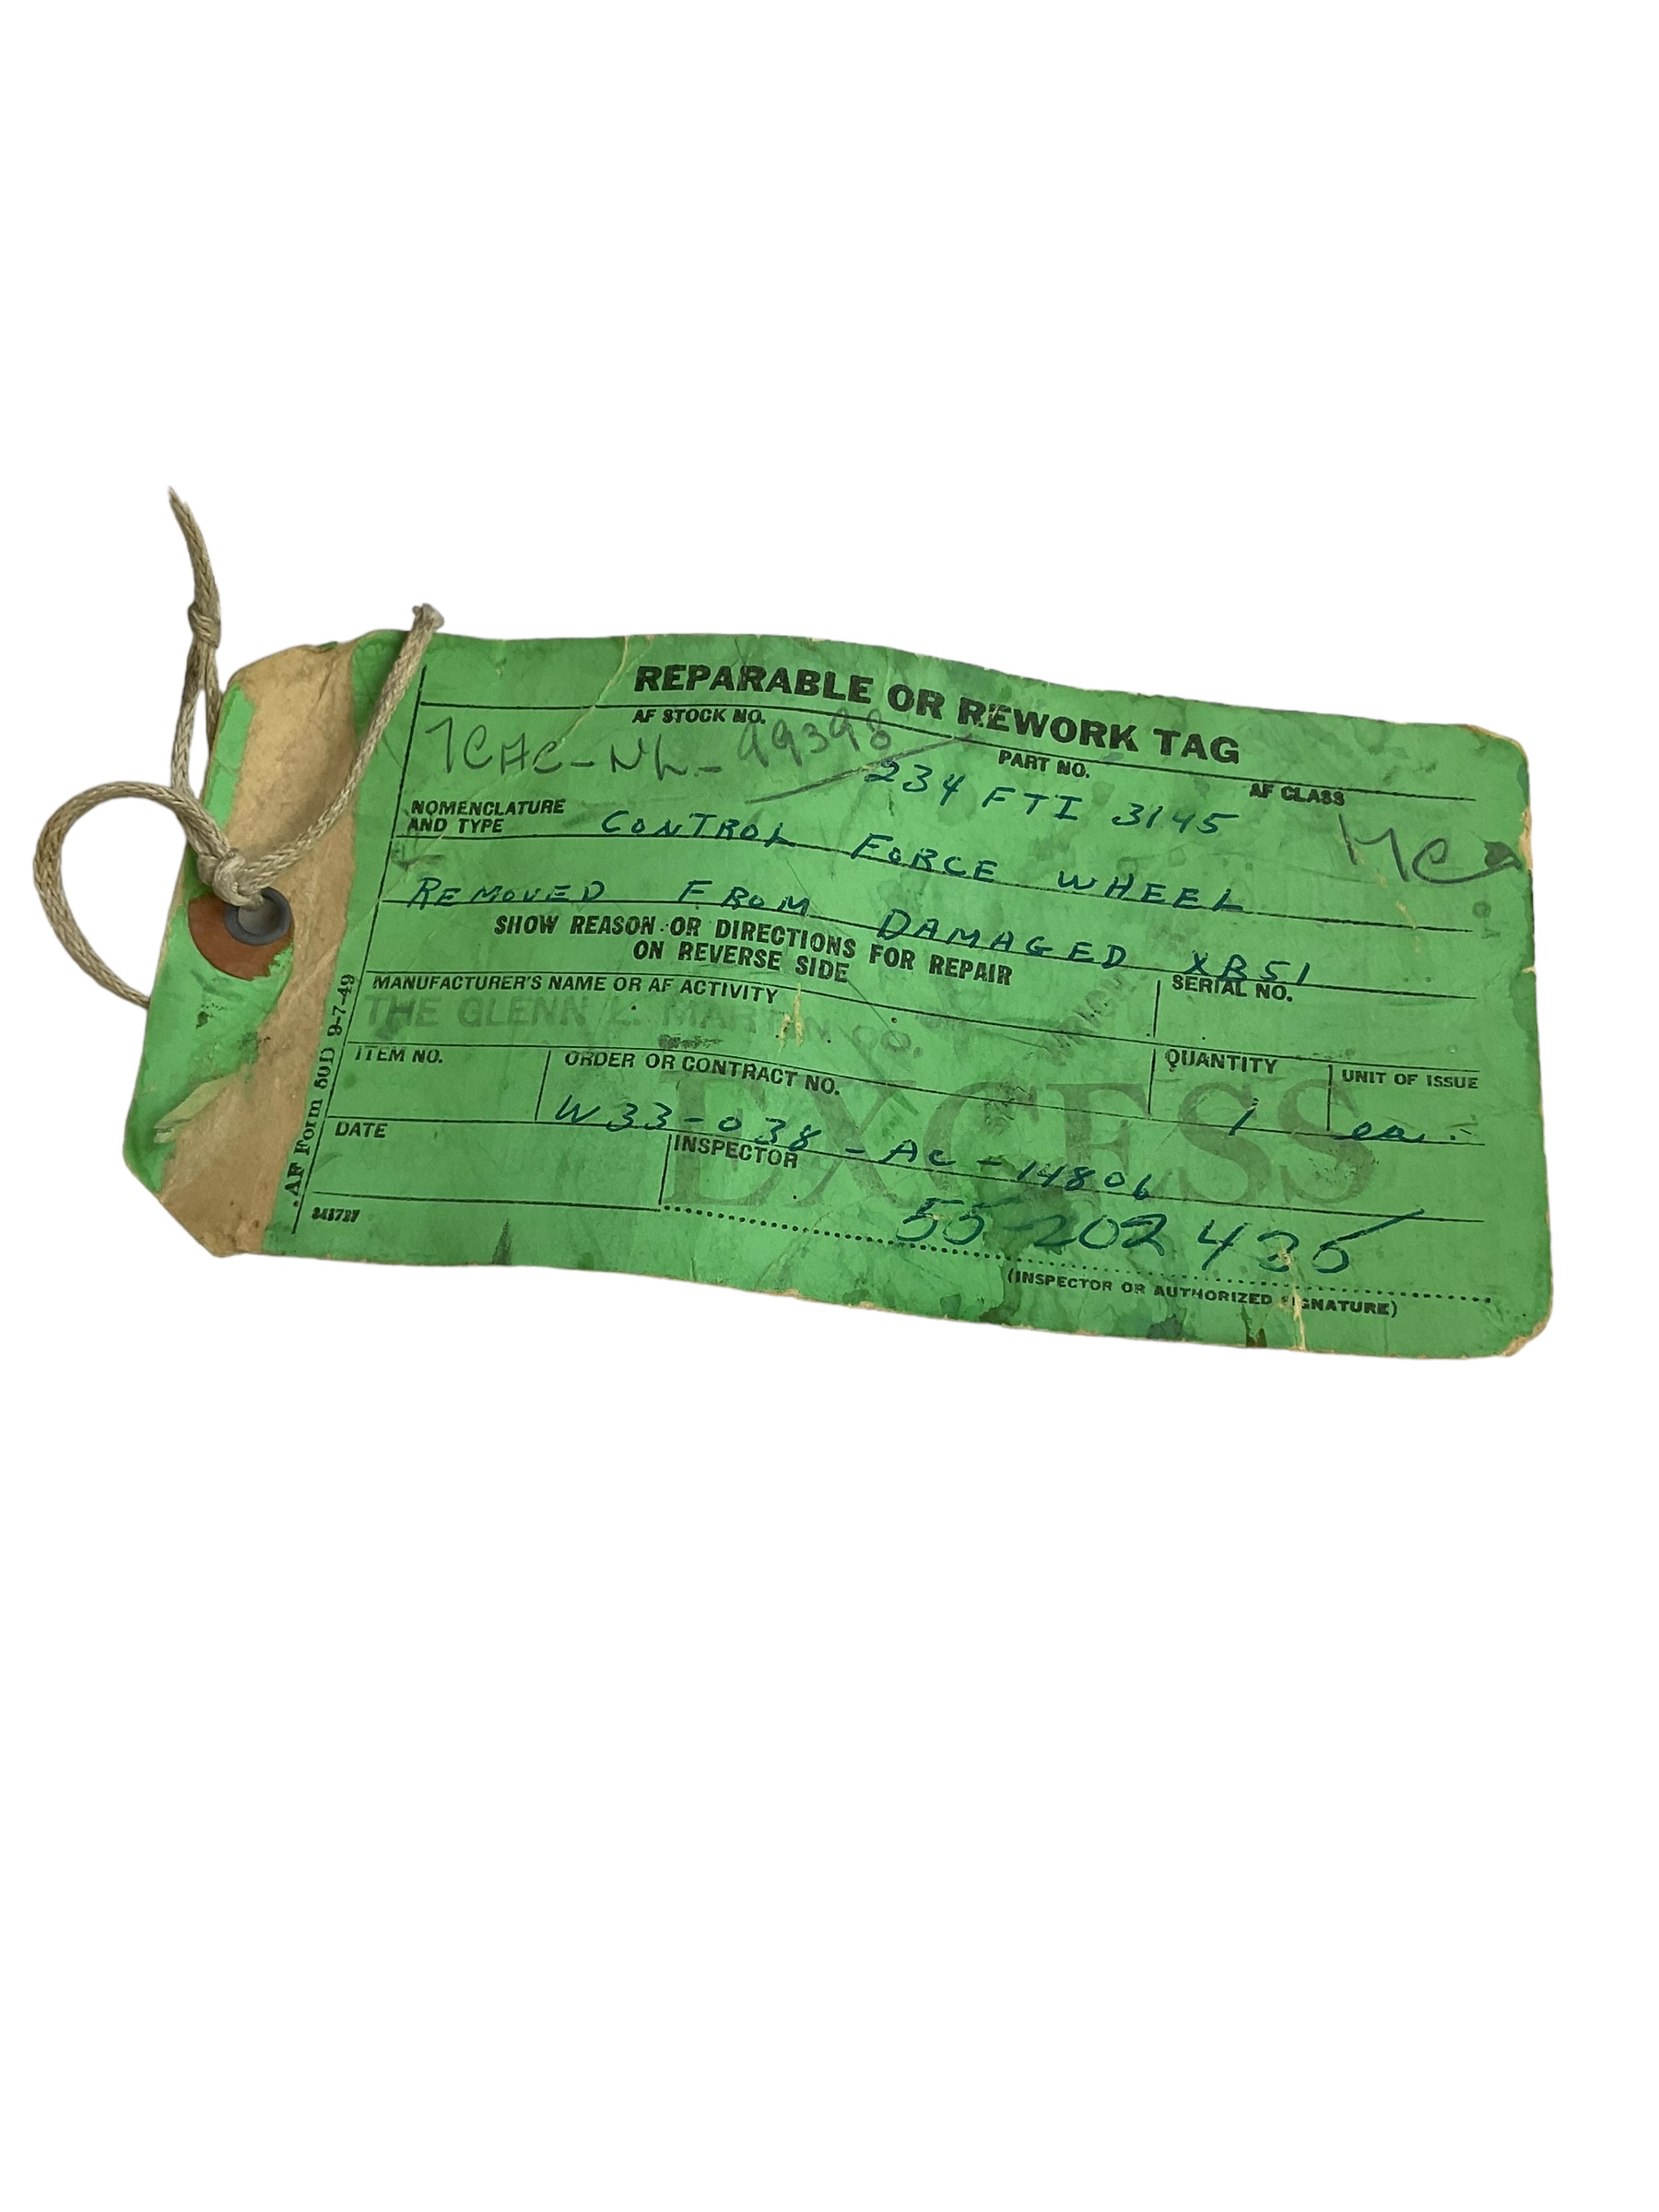 REPARABLE OR REWORK TAG
AF STOCK NO. PART NO. AF CLASS
99398 234 FTI 3145
NOMENCLATURE AND TYPE CONTROL FORCE WHEEL
REMOVED FROM DAMAGED XB51
SHOW REASON OR DIRECTIONS FOR REPAIR
ON REVERSE SIDE
MANUFACTURER'S NAME OR AF ACTIVITY SERIAL NO.
THE GLENN L. MARTIN CO.
ITEM NO. ORDER OR CONTRACT NO. QUANTITY UNIT OF ISSUE
W33-038-AC-14806 1 ea.
EXCESS
DATE INSPECTOR
55 202 435
(INSPECTOR OR AUTHORIZED SIGNATURE)
341727
AF Form 50D 9-7-49